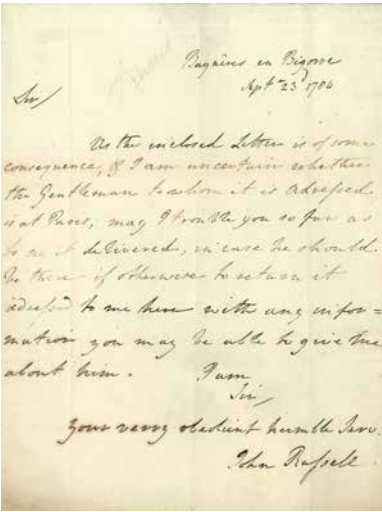 Bagnères en Bigorre
Sept.^re 23^d 1786
Sir/
As the enclosed Letter is of some
consequence, & I am uncertain whether
the Gentleman to whom it is adressed
is at Paris, may I trouble you so far as
to see it delivered, in case he should
be there - if otherwise to return it
adressed to me here with any infor=
mation you may be able to give me
about him.
I am
Sir,
Your verry obedient humble Serv.
John Russell